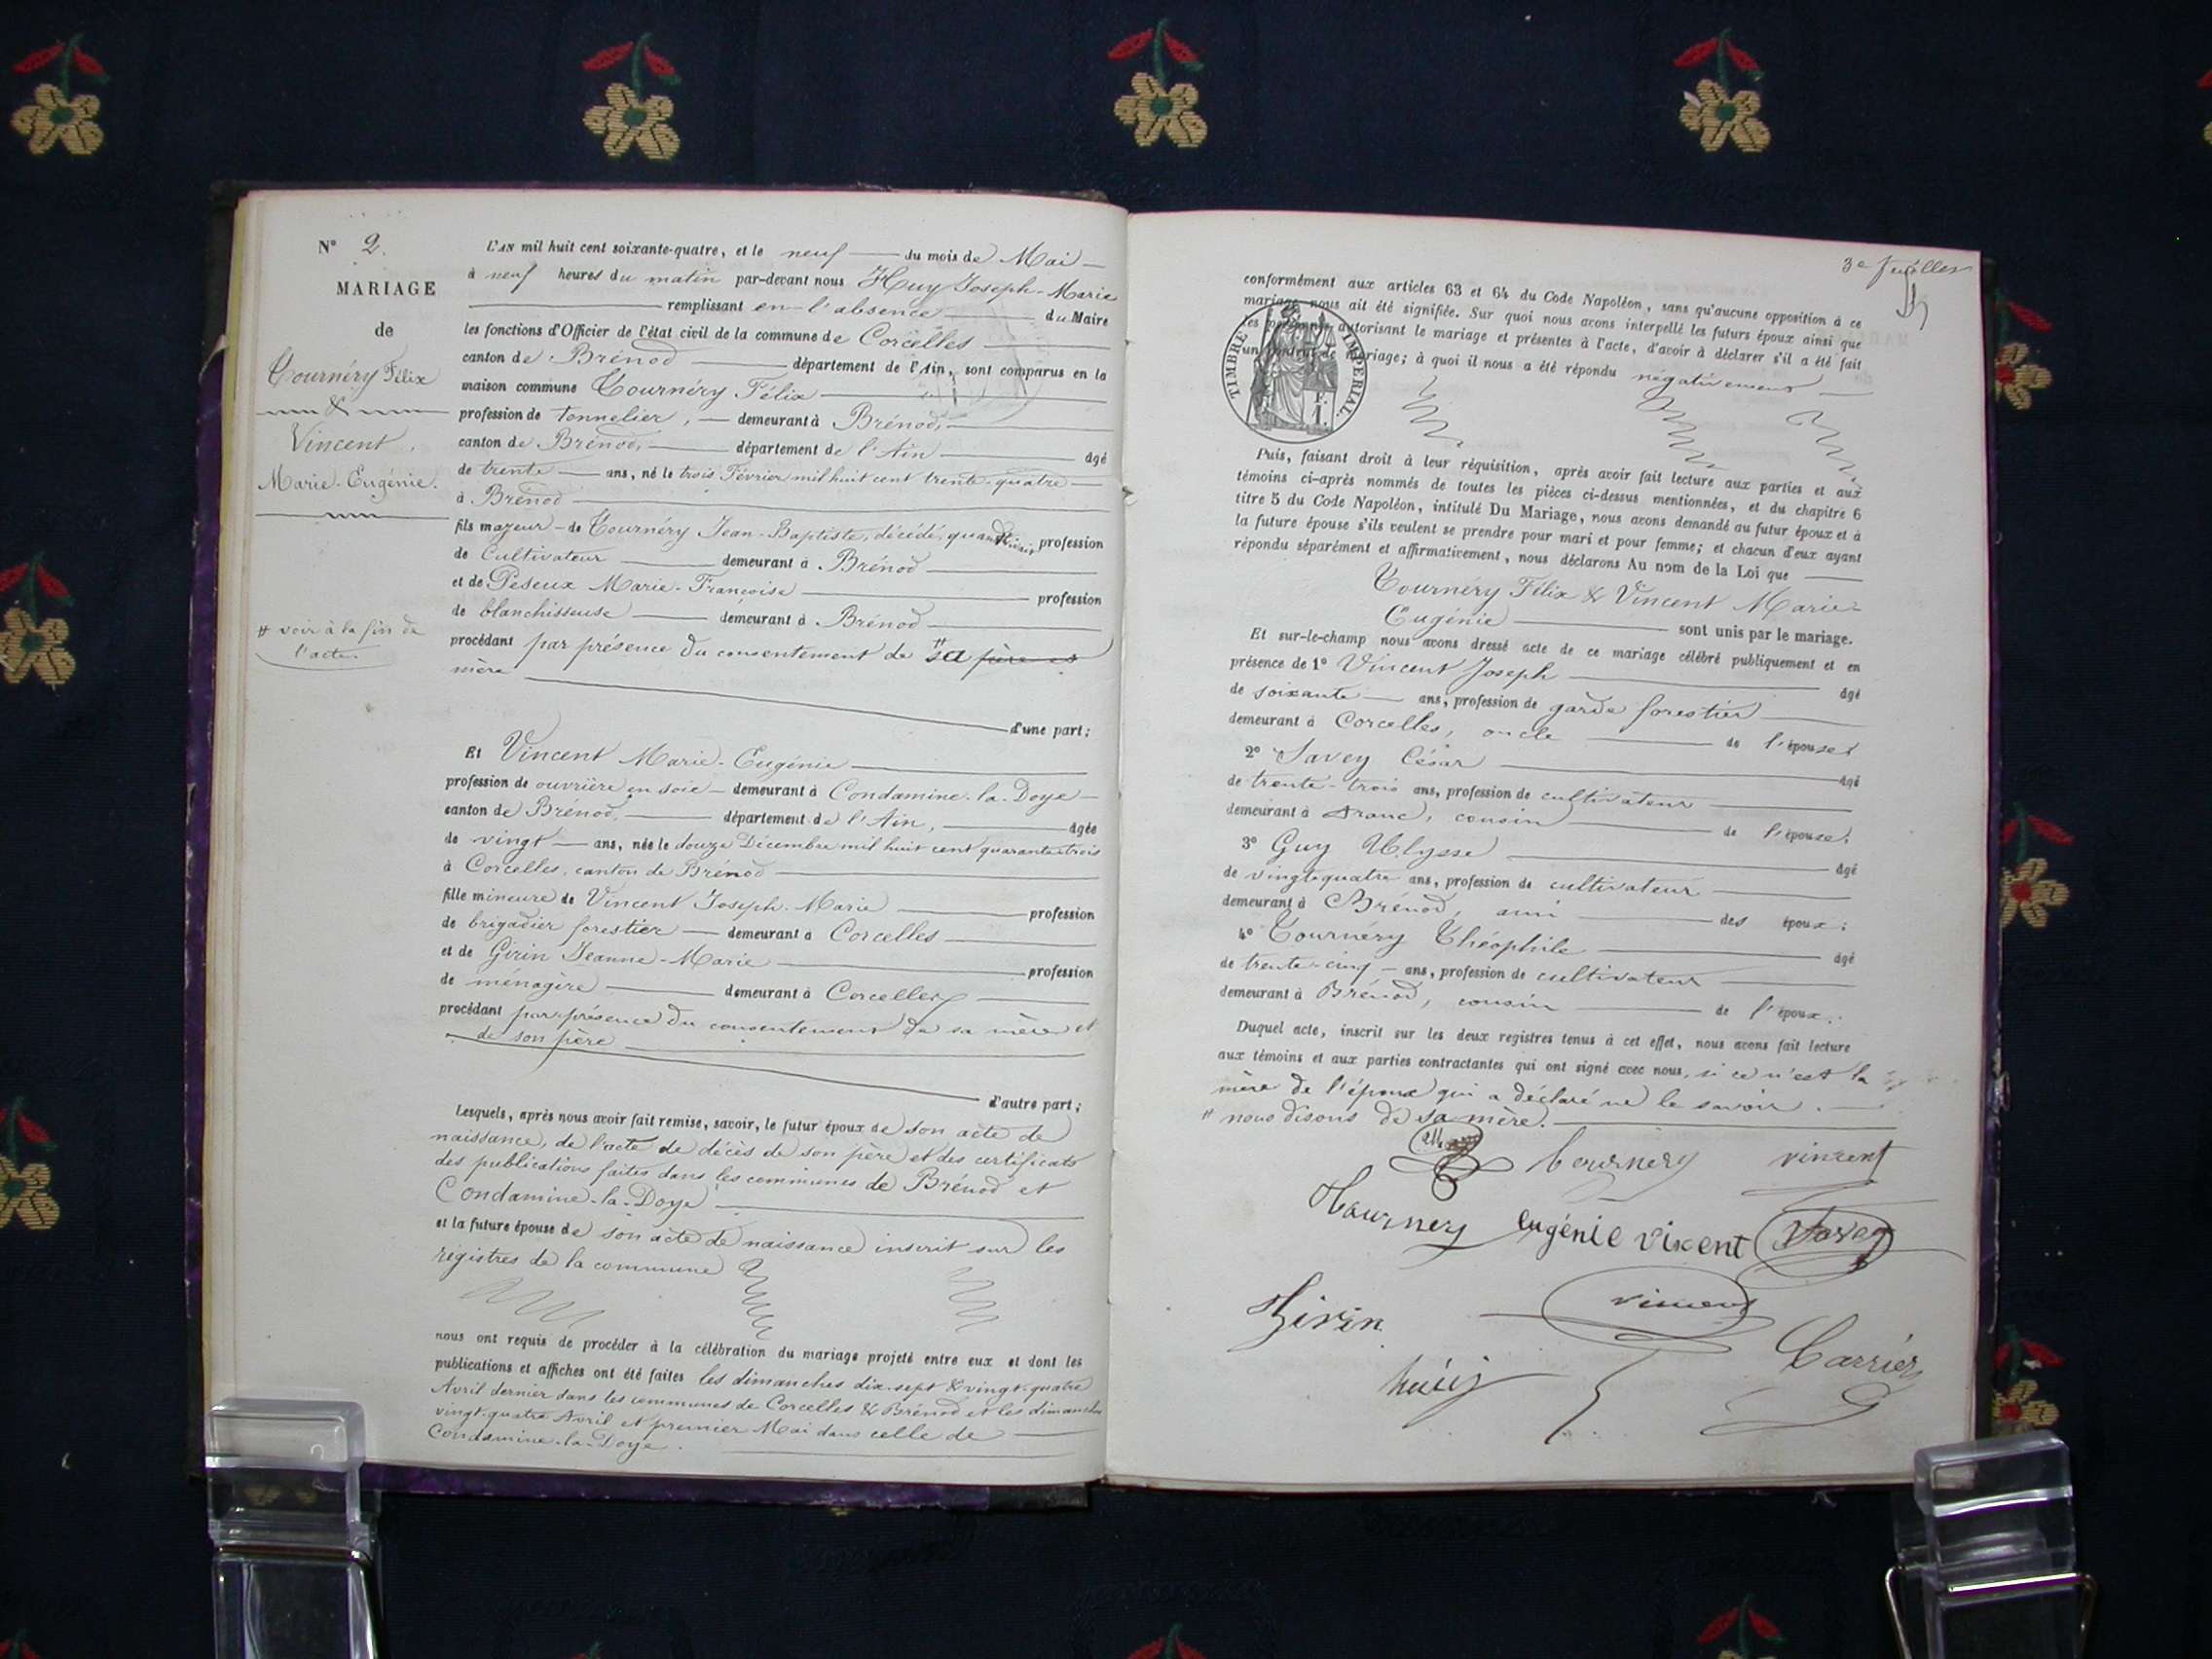 N° 2.
MARIAGE
de
Tournéry Félix
&
Vincent
Marie-Eugénie.
# voir à la fin de
l'acte.
L'AN mil huit cent soixante-quatre, et le neuf du mois de Mai
à neuf heures du matin par-devant nous Huy Joseph-Marie
remplissant en l'absence du Maire
les fonctions d'Officier de l'état civil de la commune de Corcelles
canton de Brénod département de l'Ain, sont comparus en la
maison commune Tournéry Félix
profession de tonnelier, demeurant à Brénod,
canton de Brénod, département de l'Ain âgé
de trente ans, né le trois Février mil huit cent trente-quatre
à Brénod
fils majeur de Tournéry Jean-Baptiste, décédé, quand vivait profession
de Cultivateur demeurant à Brénod
et de Peseux Marie-Françoise profession
de blanchisseuse demeurant à Brénod
procédant par présence du consentement de # sa père et
mère
d'une part;
Et Vincent Marie-Eugénie
profession de ouvrière en soie demeurant à Condamine-la-Doye
canton de Brénod, département de l'Ain, âgée
de vingt ans, née le douze Décembre mil huit cent quarante-trois
à Corcelles, canton de Brénod
fille mineure de Vincent Joseph-Marie profession
de brigadier forestier demeurant à Corcelles
et de Girin Jeanne-Marie profession
de ménagère demeurant à Corcelles
procédant par présence du consentement de sa mère et
de son père
d'autre part;
Lesquels, après nous avoir fait remise, savoir, le futur époux de son acte de
naissance, de l'acte de décès de son père et des certificats
des publications faites dans les communes de Brénod et
Condamine-la-Doye
et la future épouse de son acte de naissance inscrit sur les
régistres de la commune
nous ont requis de procéder à la célébration du mariage projeté entre eux et dont les
publications et affiches ont été faites les dimanches dix-sept & vingt-quatre
Avril dernier dans les communes de Corcelles & Brénod et les dimanches
vingt-quatre Avril et premier Mai dans celle de
Condamine-la-Doye.
3e feuillet
conformément aux articles 63 et 64 du Code Napoléon, sans qu'aucune opposition à ce
mariage nous ait été signifiée. Sur quoi nous avons interpellé les futurs époux ainsi que
les personnes autorisant le mariage et présentes à l'acte, d'avoir à déclarer s'il a été fait
un contrat de mariage; à quoi il nous a été répondu négativement
TIMBRE IMPERIAL.
F.
1.
Puis, faisant droit à leur réquisition, après avoir fait lecture aux parties et aux
témoins ci-après nommés de toutes les pièces ci-dessus mentionnées, et du chapitre 6
titre 5 du Code Napoléon, intitulé Du Mariage, nous avons demandé au futur époux et à
la future épouse s'ils veulent se prendre pour mari et pour femme; et chacun d'eux ayant
répondu séparément et affirmativement, nous déclarons Au nom de la Loi que
Tournéry Félix & Vincent Marie-
Eugénie sont unis par le mariage.
Et sur-le-champ nous avons dressé acte de ce mariage célébré publiquement et en
présence de 1° Vincent Joseph âgé
de soixante ans, profession de garde forestier
demeurant à Corcelles, oncle de l'épouse;
2° Savey César âgé
de trente-trois ans, profession de cultivateur
demeurant à Aranc, cousin de l'épouse;
3° Guy Ulysse âgé
de vingt-quatre ans, profession de cultivateur
demeurant à Brénod, ami des époux;
4° Tournéry Théophile âgé
de trente-cinq ans, profession de cultivateur
demeurant à Brénod, cousin de l'époux;
Duquel acte, inscrit sur les deux registres tenus à cet effet, nous avons fait lecture
aux témoins et aux parties contractantes qui ont signé avec nous, si ce n'est la
mère de l'époux qui a déclaré ne le savoir.
# nous disons de sa mère.
tournery vincent
Tournery eugénie vixent Savey
Girin vincent
Carrier
huuy